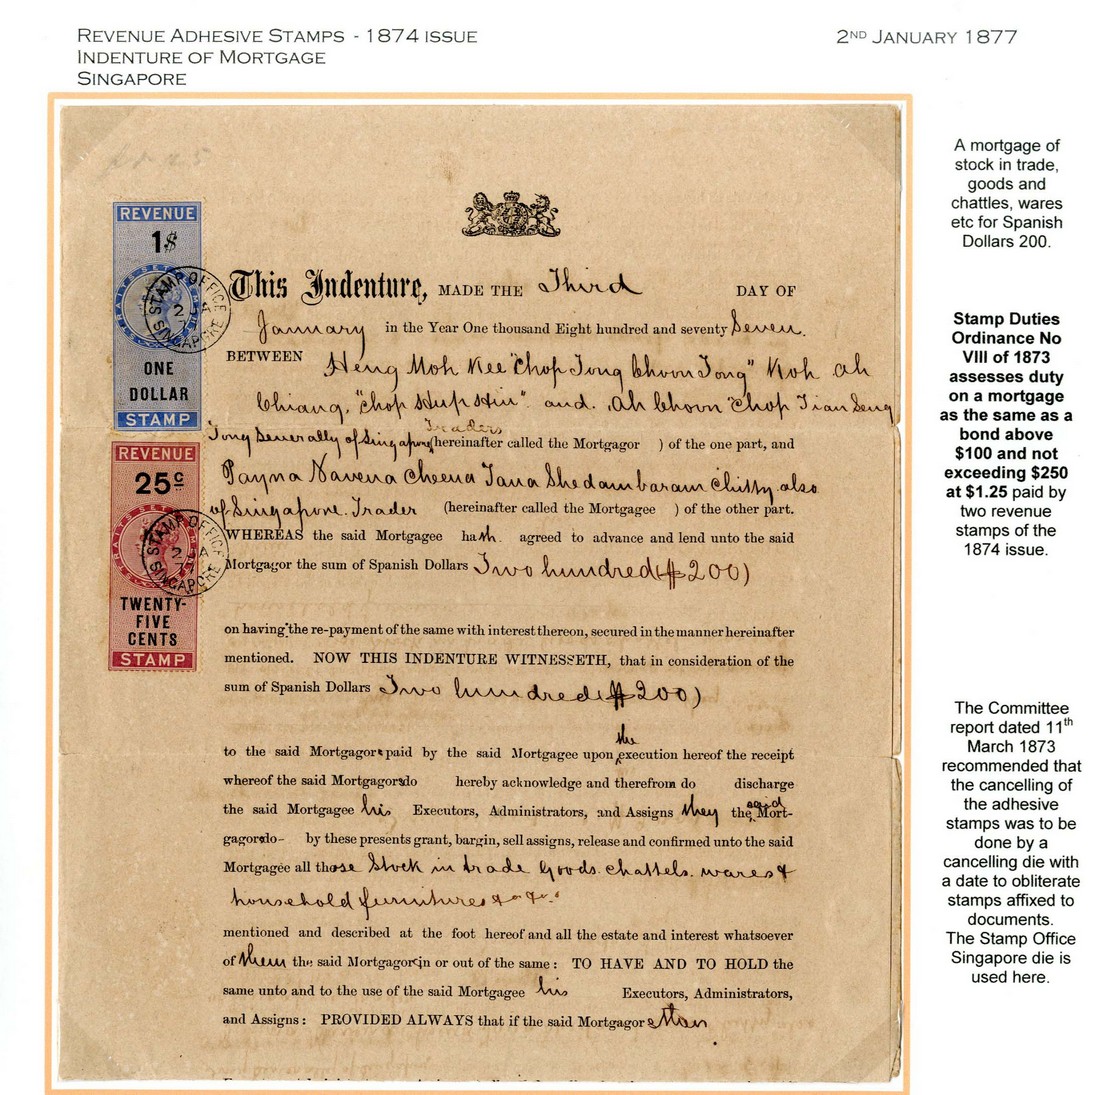 REVENUE ADHESIVE STAMPS - 1874 ISSUE
INDENTURE OF MORTGAGE
SINGAPORE
2ND JANUARY 1877
REVENUE
1$
STRAITS SETTLEMENTS
ONE
DOLLAR
STAMP
STAMP OFFICE
2 JA
77
SINGAPORE
REVENUE
25c
STRAITS SETTLEMENTS
TWENTY-
FIVE
CENTS
STAMP
STAMP OFFICE
2 JA
77
SINGAPORE
This Indenture, MADE THE Third DAY OF
January in the Year One thousand Eight hundred and seventy Seven.
BETWEEN Heng Moh Kee "Chop Tong Choon Tong" Koh Ah
Chiang, "Chop Hup Hin" and Ah Choon "Chop Tian Seng
Tong Severally of Singapore Traders (hereinafter called the Mortgagor ) of the one part, and
Payna Navena Cheena Tana Shedambaram Chitty also
of Singapore. Trader (hereinafter called the Mortgagee ) of the other part.
WHEREAS the said Mortgagee hath agreed to advance and lend unto the said
Mortgagor the sum of Spanish Dollars Two hundred ($200)
on having the re-payment of the same with interest thereon, secured in the manner hereinafter
mentioned. NOW THIS INDENTURE WITNESSETH, that in consideration of the
sum of Spanish Dollars Two hundred ($200)
to the said Mortgagors paid by the said Mortgagee upon the execution hereof the receipt
whereof the said Mortgagors do hereby acknowledge and therefrom do discharge
the said Mortgagee his Executors, Administrators, and Assigns they the said Mort-
gagors do - by these presents grant, bargin, sell assigns, release and confirmed unto the said
Mortgagee all those Stock in trade Goods. chattels. wares &
household furnitures &c &c.
mentioned and described at the foot hereof and all the estate and interest whatsoever
of them the said Mortgagor in or out of the same: TO HAVE AND TO HOLD the
same unto and to the use of the said Mortgagee his Executors, Administrators,
and Assigns: PROVIDED ALWAYS that if the said Mortgagors
A mortgage of
stock in trade,
goods and
chattles, wares
etc for Spanish
Dollars 200.
Stamp Duties
Ordinance No
VIII of 1873
assesses duty
on a mortgage
as the same as a
bond above
$100 and not
exceeding $250
at $1.25 paid by
two revenue
stamps of the
1874 issue.
The Committee
report dated 11th
March 1873
recommended that
the cancelling of
the adhesive
stamps was to be
done by a
cancelling die with
a date to obliterate
stamps affixed to
documents.
The Stamp Office
Singapore die is
used here.